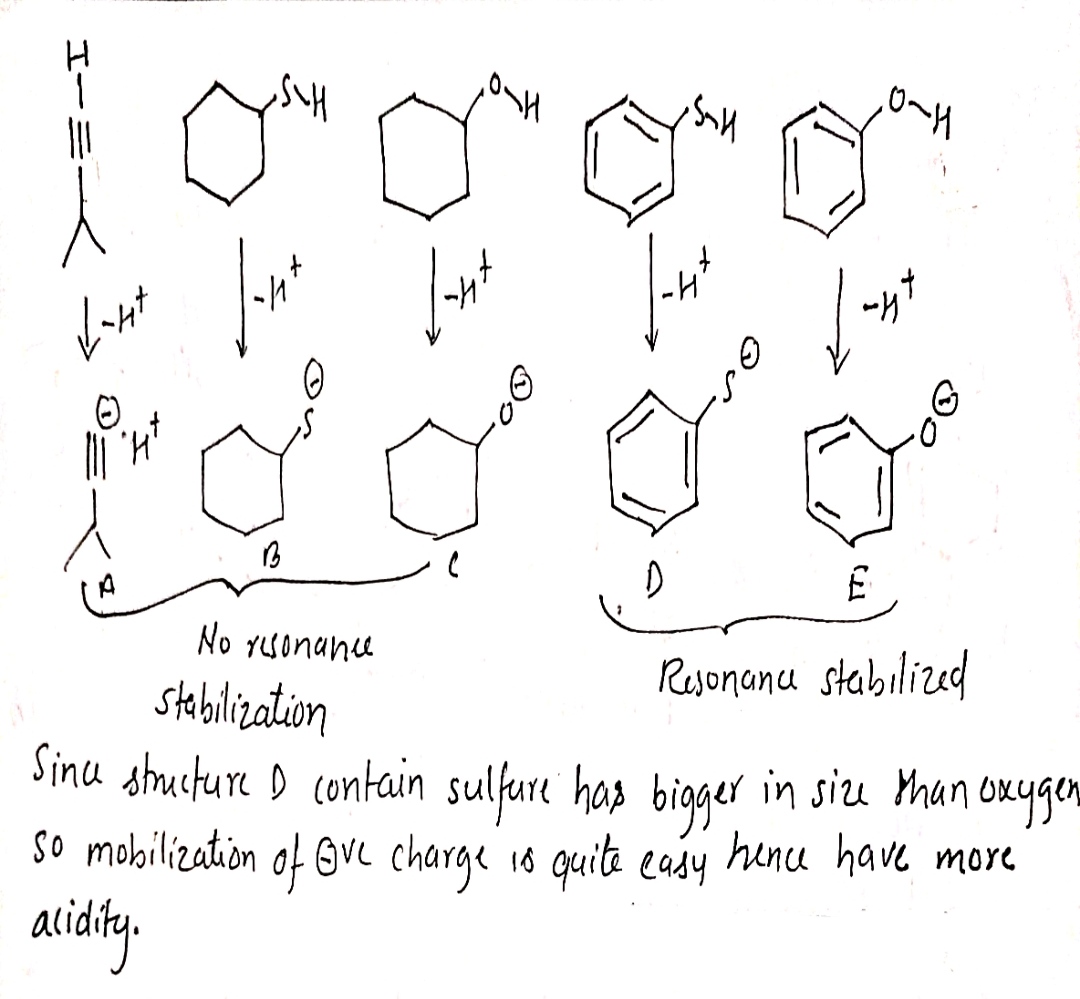 H
S H
O H
S H
O H
-H+
-H+
-H+
-H+
-H+
⊖ H+
⊖
S
⊖
O
⊖
S
⊖
O
A
B
C
D
E
No resonance
stabilization
Resonance stabilized
Since structure D contain sulfure has bigger in size than oxygen
so mobilization of ⊖ve charge is quite easy hence have more
acidity.